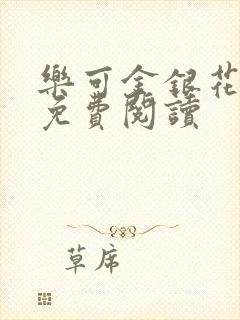 樂可金銀花
免費閱讀
草席